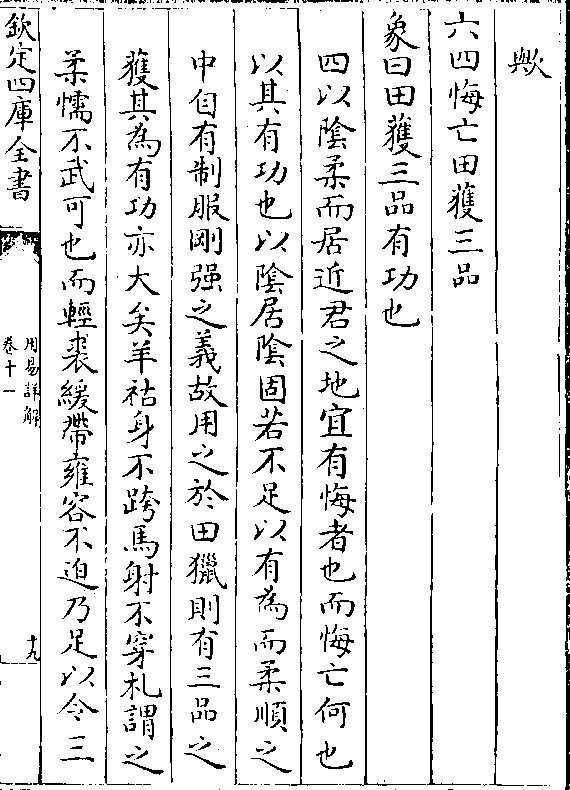 歟
六四悔亡田獲三品
象曰田獲三品有功也
四以陰柔而居近君之地宜有悔者也而悔亡何也
以其有功也以陰居陰固若不足以有為而柔順之
中自有制服剛强之義故用之於田獵則有三品之
獲其為有功亦大矣羊祜身不跨馬射不穿札謂之
柔懦不武可也而輕裘緩帶雍容不迫乃足以令三
欽定四庫全書
周易詳解
卷十一
十九